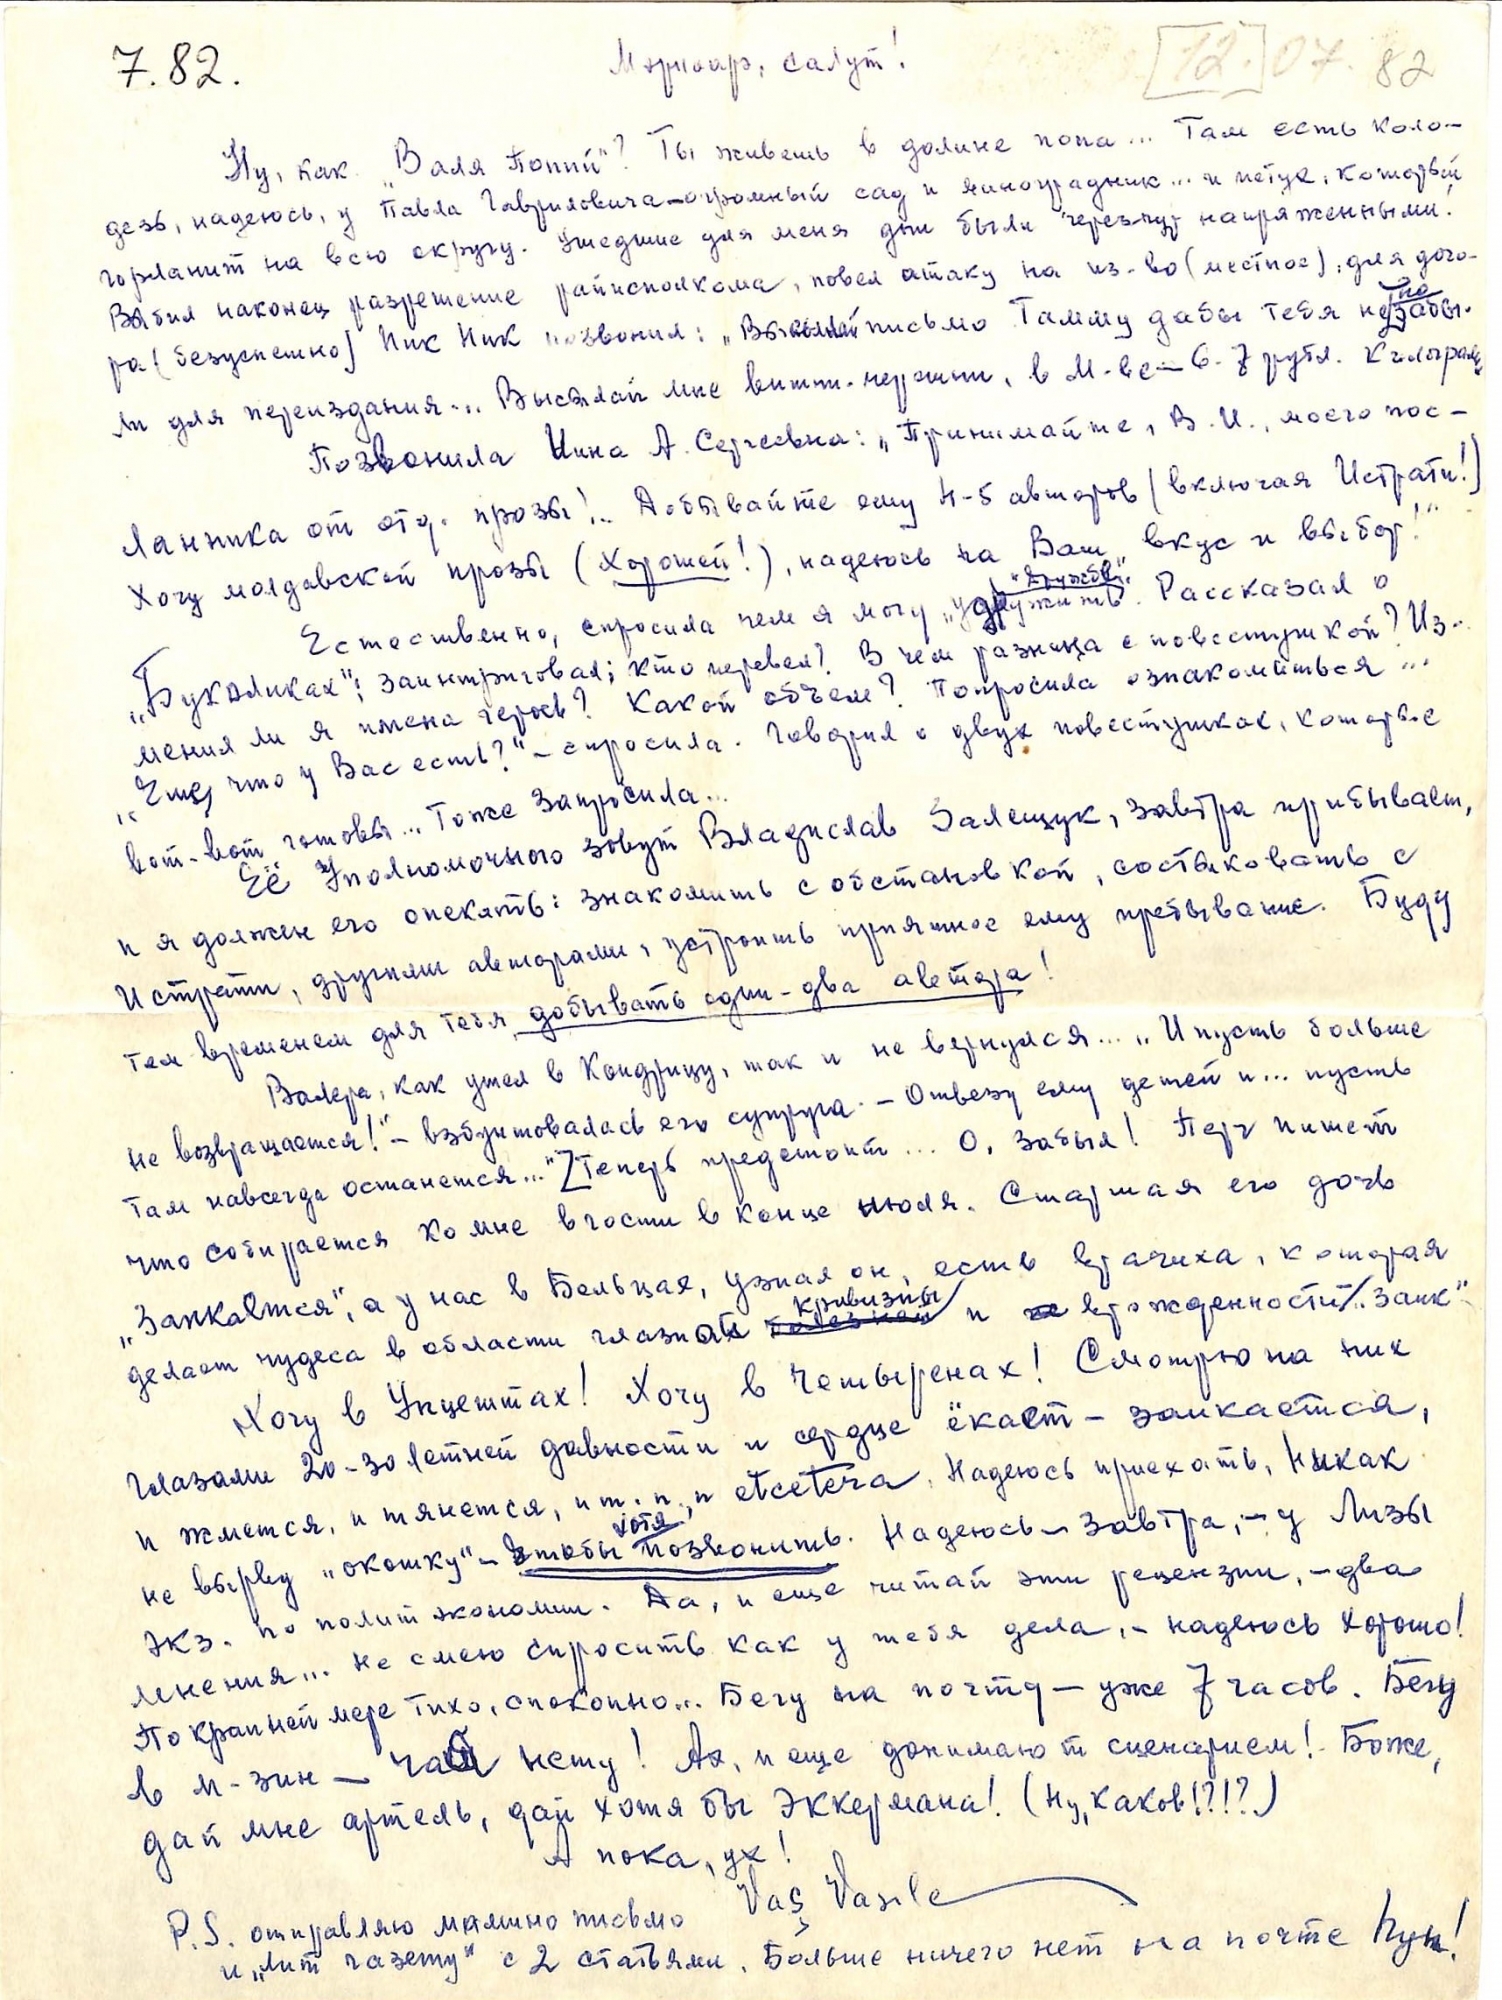 7.82.
Мэриоара, салут!
[12.] 07. 82
Ну, как „Валя Попий"? Ты живешь в долине попа... Там есть коло-
дезь, надеюсь, у Павла Гавриловича – огромный сад и виноградник... и петух, который
горланит на всю округу. Ушедшие для меня дни были черезчур напряженными!
Выбил наконец разрешение райисполкома, повел атаку на из-во (местное), для дого-
ра (безуспешно) Ник Ник позвонил: „Высылай письмо Тамму дабы тебя не забы-
ли для переиздания... Высылай мне витт. черешни, в М-ве – 6-7 рубл. Килограмм
Позвонила Нина А. Сергеевна: „Принимайте, В.И., моего пос-
ланника от отд. прозы!.. Добывайте ему 4-5 авторов (включая Истрати!)
Хочу молдавской прозы (хорошей!), надеюсь на Ваш вкус и выбор!"
Естественно, спросила чем я могу „удружить". Рассказал о
„Буколиках"; заинтриговал; кто перевел? В чем разница с повестушкой? Из-
менил ли я имена героев? Какой объем? Попросила ознакомиться...
„Еще, что у Вас есть?" – спросила. Говорил о двух повестушках, которые
вот-вот готовы... Тоже запросила...
Её Уполномочного зовут Владислав Залещук, завтра прибывает,
и я должен его опекать: знакомить с обстановкой, состыковать с
Истрати, другими авторами, устроить приятное ему пребывание. Буду
тем временем для тебя добывать один-два автора!
Валера, как ушел в Кондрицу, так и не вернулся... „И пусть больше
не возвращается!" – взбунтовалась его супруга. – Отвезу ему детей и... пусть
там навсегда останется..." Теперь предстоит... О, забыл! Петр пишет
что собирается ко мне в гости в конце июля. Старшая его дочь
„Заикается", а у нас в Бельцах, узнал он, есть врачиха, которая
делает чудеса в области глазной кривизны и врожденности „заик"
Хочу в Унцештах! Хочу в Четыренах! Смотрю на них
глазами 20-30 летней давности и сердце ёкает – заикается,
и жмется, и тянется, и т.п., и etcetera. Надеюсь приехать, никак
не вырву „окошку" – чтобы хотя позвонить. Надеюсь – завтра, – у Лизы
экз. по политэкономии. Да, и еще читай эти рецензии, – два
мнения... Не смею спросить как у тебя дела, – надеюсь хорошо!
По крайней мере тихо, спокойно... Бегу на почту – уже 7 часов. Бегу
в м-зин – чая нету! Ах, и еще донимают сценарием! Боже,
дай мне артель, дай хотя бы Эккермана! (Ну, каков!?!?)
А пока, ух!
Vaș Vasile
P.S. отправляю мамино письмо
и „Лит газету" с 2 статьями. Больше ничего нет на почте